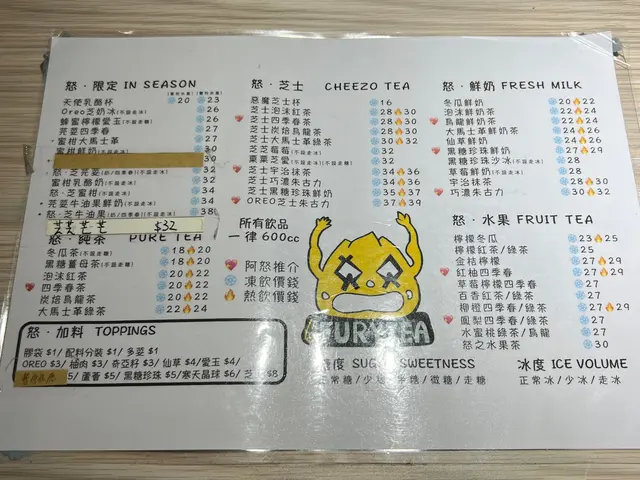 怒·限定 IN SEASON
天使乳酪杯 20 23
Oreo芝奶冰(不設走冰) 26
蜂蜜檸檬愛玉(不設走糖) 26
芫荽四季春 27
蜜柑大馬士革 27
蜜柑鮮奶(不設走冰) 30
30
怒·芝芫荽(奶/四季春)(不設走冰) 32
蜜柑乳酪奶(不設走冰) 32
怒·芝蜜柑(不設走冰) 34
芫荽牛油果鮮奶(不設走冰) 34
怒·芝牛油果(奶/四季春)(不設走冰) 38
$32
怒·純茶 PURE TEA
冬瓜茶(不設走糖) 18 20
黑糖薑母茶(不設走糖) 18 20
泡沫紅茶 20 22
四季春茶 20 22
炭焙烏龍茶 20 22
大馬士革茶 22 24
怒·加料 TOPPINGS
膠袋 $1/ 配料分裝 $1/ 多荽 $1
OREO $3/ 柚肉 $3/ 奇亞籽 $3/ 仙草 $4/愛玉 $4/
5/ 蘆薈 $5/ 黑糖珍珠 $5/寒天晶球 $6/ 芝 $8
怒·芝士 CHEEZO TEA
惡魔芝士杯 16
芝士泡沫紅茶 28 30
芝士四季春茶 28 30
芝士炭焙烏龍茶 28 30
芝士大馬士革茶 30 32
芝芝莓莓(不設走冰) 32
菓菓芝愛(不設走冰)(不設走糖) 32
芝士宇治抹茶 34 36
芝士巧濃朱古力 34 36
芝士黑糖珍珠鮮奶 35 37
OREO芝士朱古力 37 39
所有飲品
一律 600cc
阿怒推介
凍飲價錢
熱飲價錢
FURY TEA
怒·鮮奶 FRESH MILK
冬瓜鮮奶 20 22
泡沫鮮奶茶 22 24
烏龍鮮奶茶 22 24
大馬士革鮮奶茶 24 26
仙草鮮奶 24 26
黑糖珍珠鮮奶 27 29
黑糖珍珠沙冰(不設走冰) 28
草莓鮮奶(不設走冰) 28
宇治抹茶 28 30
巧濃朱古力 30 32
怒·水果 FRUIT TEA
檸檬冬瓜 23 25
檸檬紅茶/綠茶 25
金桔檸檬 27 29
紅柚四季春 27 29
草莓檸檬四季春 27
百香紅茶/綠茶 27
柳橙四季春/綠茶 27 29
鳳梨四季春/綠茶 27 29
水蜜桃綠茶/烏龍 27
怒之水果茶 30
度 SUGAR SWEETNESS
正常糖/少糖/半糖/微糖/走糖
冰度 ICE VOLUME
正常冰/少冰/走冰